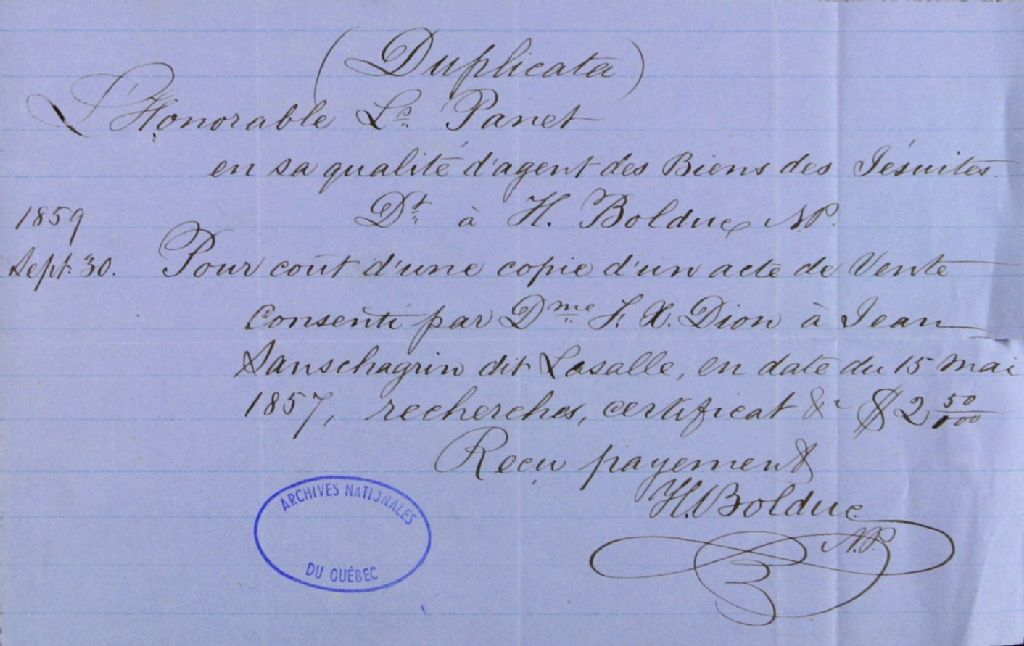 (Duplicata)
L'Honorable Ls. Panet
en sa qualité d'agent des Biens des Jésuites.
Dt. à H. Bolduc N.P.
1859
Sept. 30. Pour coût d'une copie d'un acte de Vente
consenti par Dme. F. X. Dion à Jean
Sanschagrin dit Lasalle, en date du 15 mai
1857, recherches, certificat &c $2 50/100
Reçu payement
H. Bolduc
N.P.
ARCHIVES NATIONALES
DU QUÉBEC